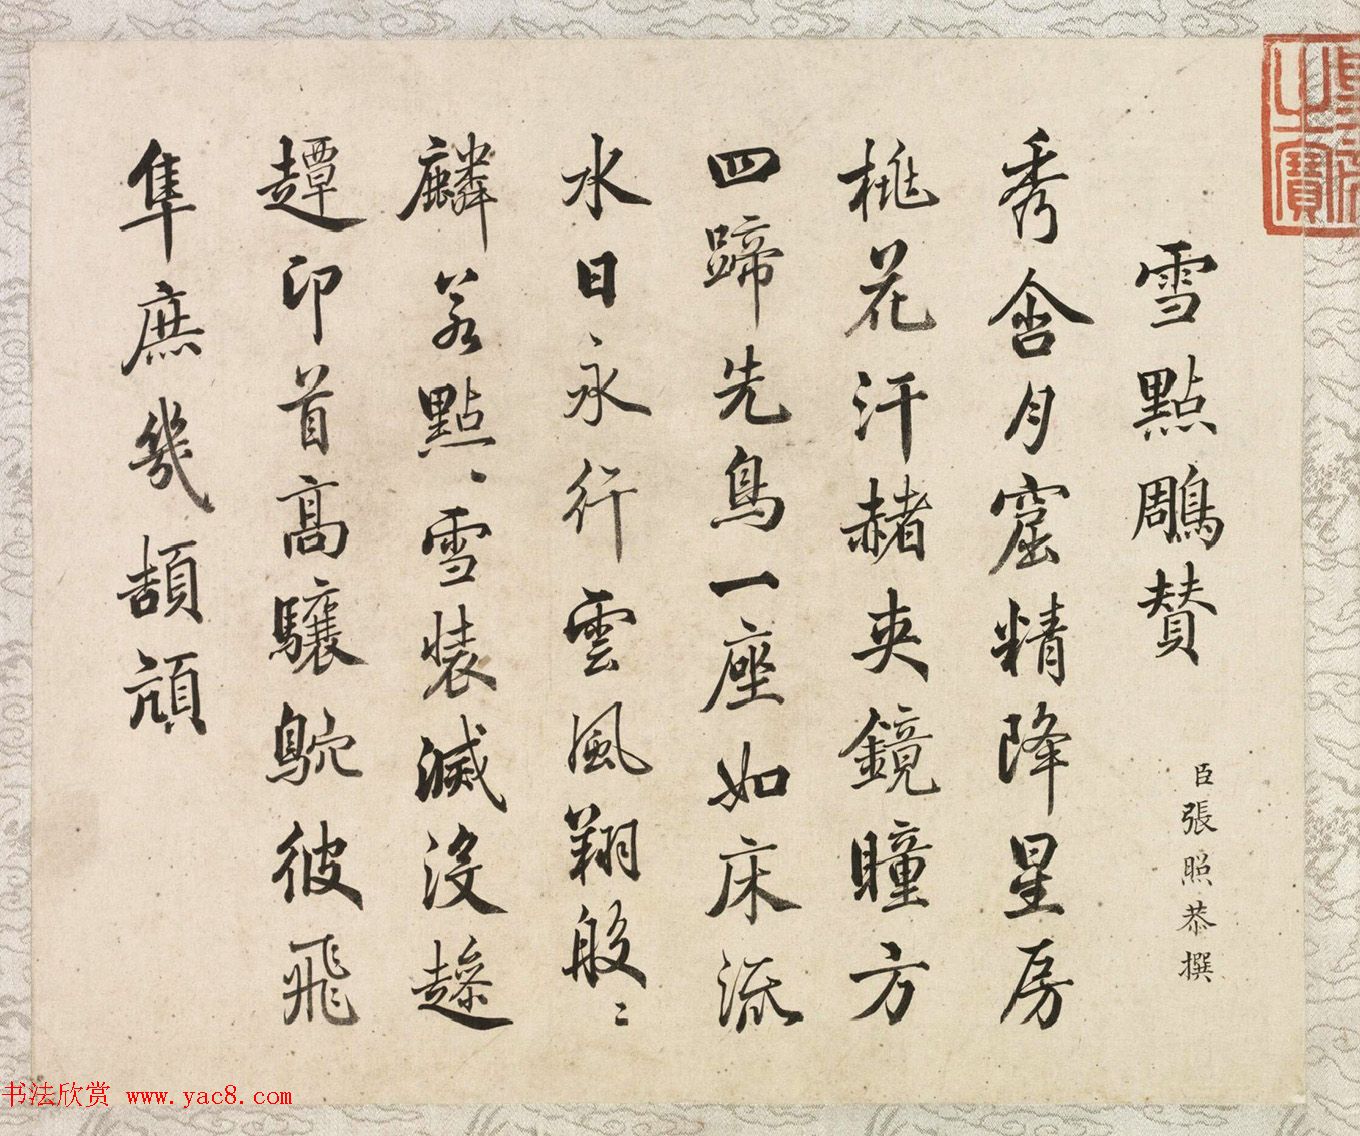 雪點鵰贊
臣張照恭撰
秀含月窟精降星房
桃花汗赭夾鏡瞳方
四蹄先鳥一座如床流
水日永行雲風翔般〻
麟若點〻雪裝滅沒趁
趯卬首高驤鴥彼飛
隼庶幾頡頏
之寶
书法欣赏 www.yac8.com